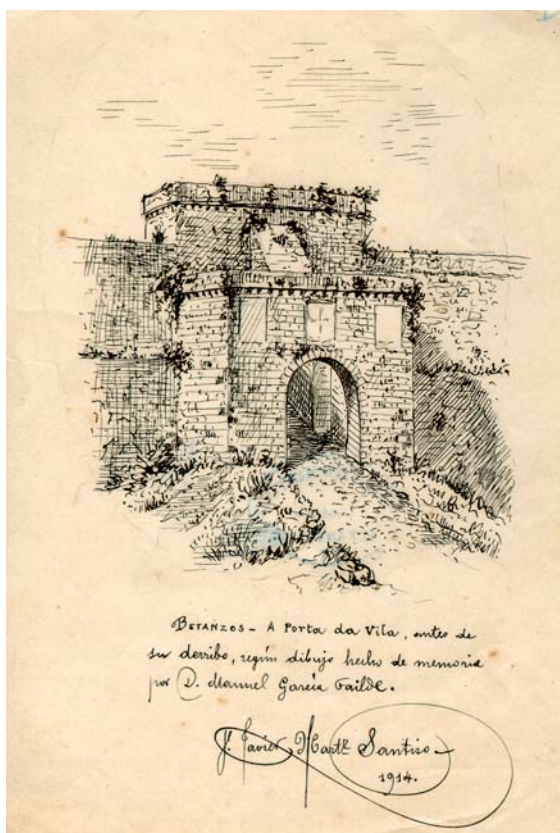 BETANZOS - A Porta da Vila, antes de
su derribo, según dibujo hecho de memoria
por D. Manuel García Gailde.
F. Javier Martz Santiso
1914.